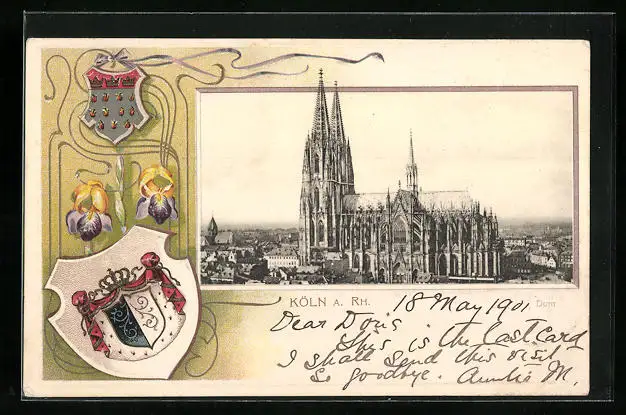 KÖLN A. RH.
Dom
18 May 1901
Dear Doris
This is the last card
I shall send this visit
So goodbye. Auntie M.